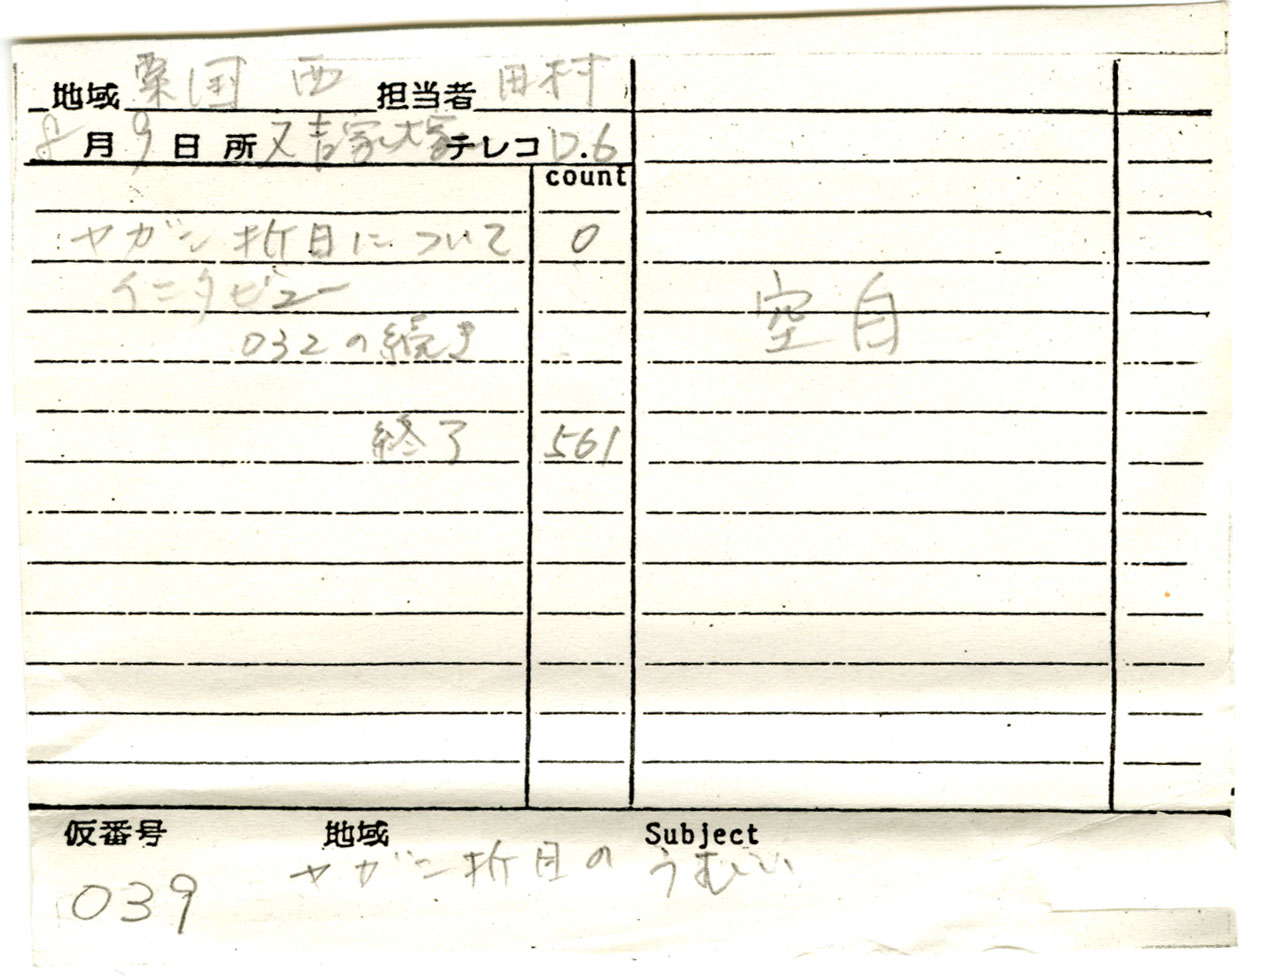 地域 粟国 西 担当者 田村
8月9日 所 又吉家大家 テレコ D.6
count
ヤガン折目について 0
インタビュー
032の続き
終了 561
空白
仮番号 地域 Subject
039 ヤガン折目の うむい